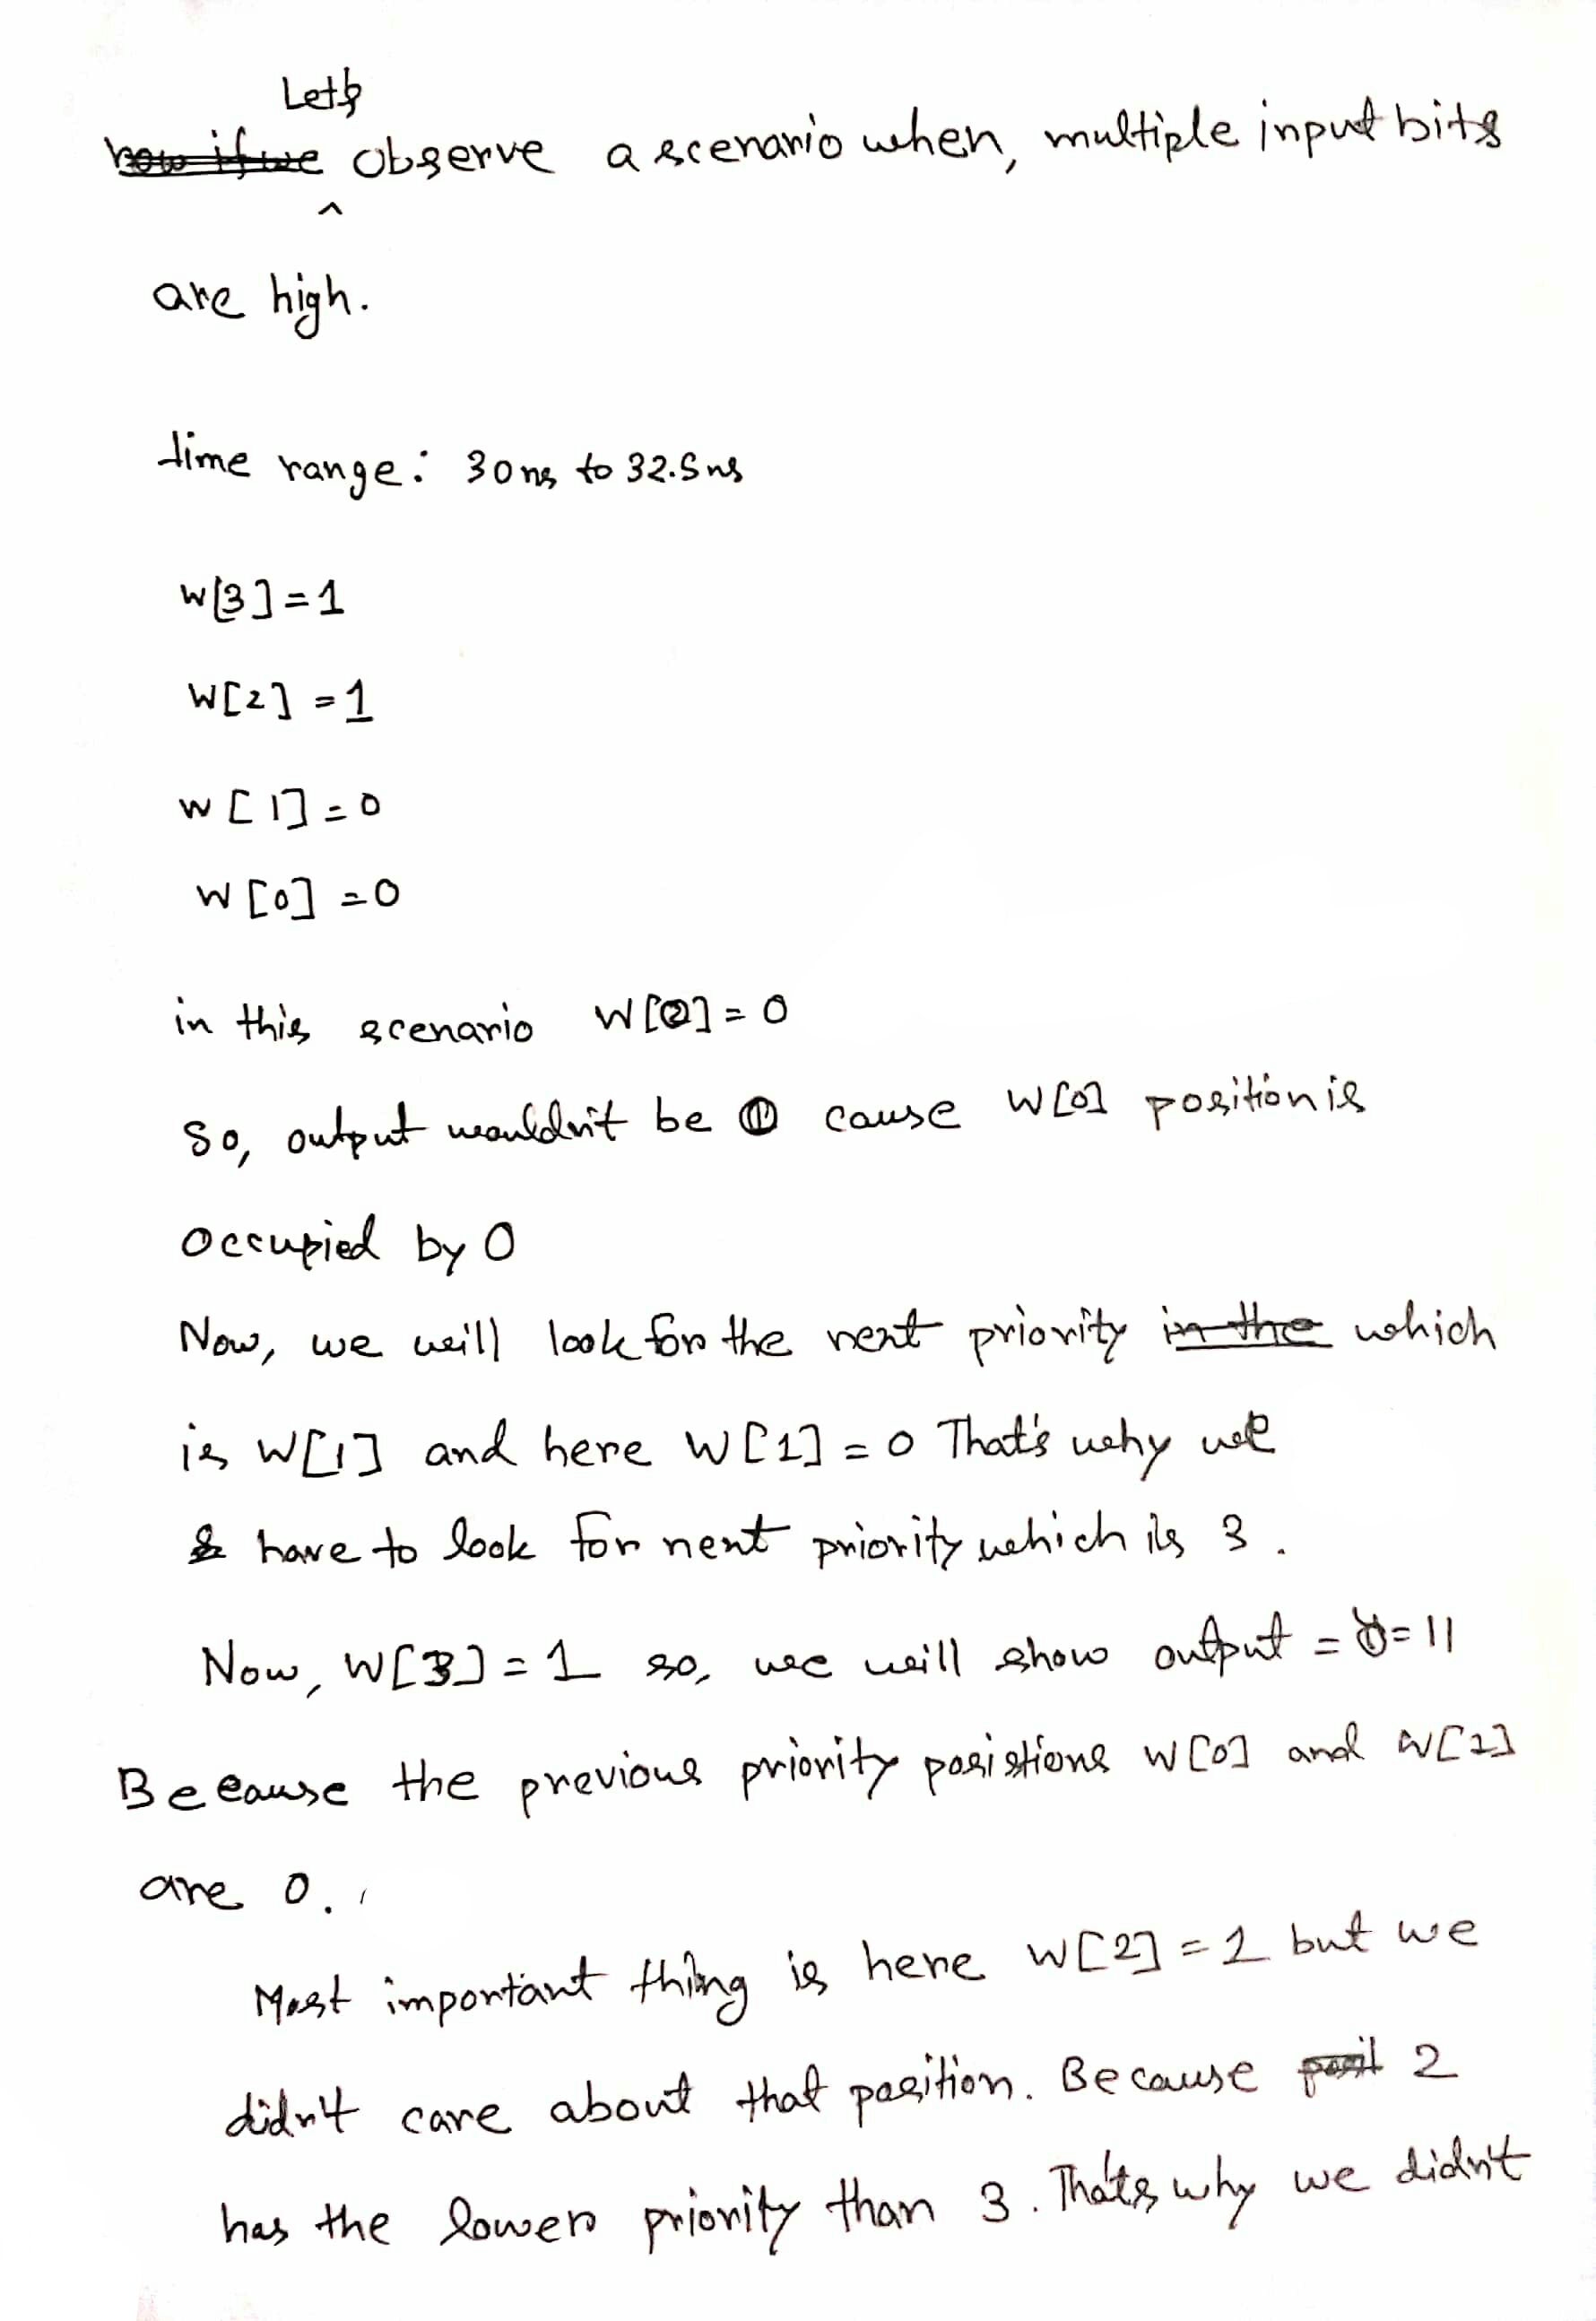 Lets
now if we observe a scenario when, multiple input bits
are high.
time range: 30 ns to 32.5 ns
W[3] = 1
W[2] = 1
W[1] = 0
W[0] = 0
in this scenario W[0] = 0
So, output wouldn't be cause W[0] position is
occupied by 0
Now, we will look for the next priority in the which
is W[1] and here W[1] = 0 That's why we
have to look for next priority which is 3.
Now, W[3] = 1 so, we will show output = y = 11
Because the previous priority posistions W[0] and W[1]
are 0.
Most important thing is here W[2] = 1 but we
didn't care about that position. Because 2
has the lower priority than 3. That's why we didn't